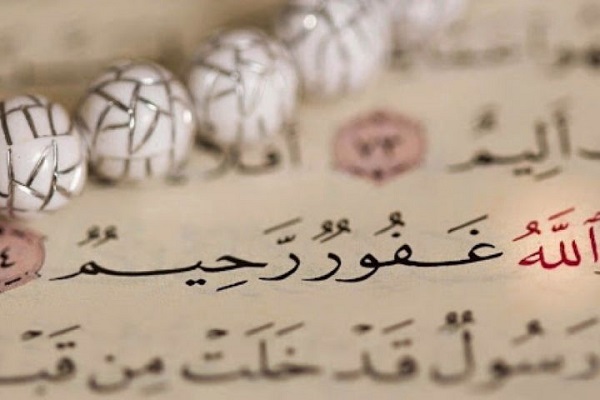 أَلِيمٌ ٧٣
ٱللَّهُ غَفُورٌ رَّحِيمٌ ٤
رَسُولٌ قَدْ خَلَتْ مِن قَبْ